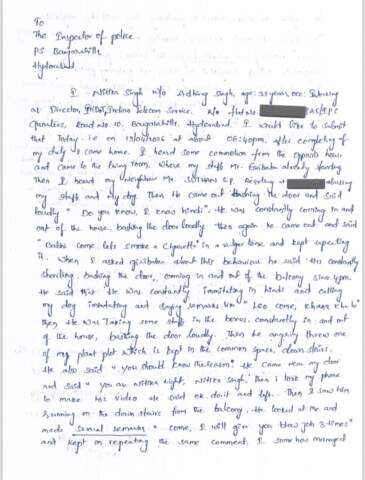 To
The Inspector of police
PS Banjarahills,
Hyderabad.
I Nitika Singh w/o singh, age: 33 years, occ: Working
as Director, Indian Telecom Service. R/o flat no. IAS/IPS
Quarters, Road No. 10. Banjarahills. Hyderabad. I would like to submit
that Today i.e on at about 06:40pm, after completing of
my duty I came home. I heard some commotion from the opposite house
and came to the living room, where my staff Mr. already standing
Then I heard my neighbour Mr. residing at abusing
my staff and my dog. Then He came out bashing the door and said
loudly "Do you know, I know hindi". He was constantly coming in and
out of the house, bashing the door loudly then again he came out and said
come lets smoke a Cigarette" in a vulgar tone and kept repeating
it. when I asked about this behaviour he said "His constantly
shouting, bashing the door, coming in and out of the balcony since 4pm.
He said that He was constantly immitating in hindi and calling
my dog immitating and saying remarks like "Leo come, khana kha lo"
then He was Taking some stuff in the boxes. constantly in and out
of the house, bashing the door loudly. Then he angerly threw one
of my plant plot which is kept in the common space, down stairs.
He also said "you should know the reason". He came near my door
and said "you are Nitika right, Nitika Singh", then I took my phone
to make his video He said ok do it and left. Then I saw him
running in the down stairs from the balcony. He looked at me and
made sexual remarks "come, I will give you blow job 3-times"
and kept on repeating the same comment. I some how managed